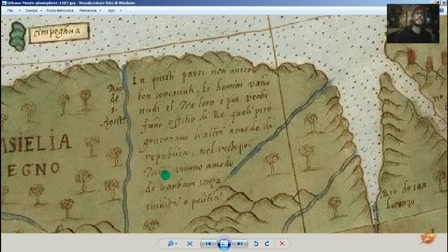 Urbano Monte planisphere 1587.jpg - Visualizzatore foto di Windows
File Stampa Posta elettronica Masterizza Apri
cimpeghua
In questi paesi non ancora
ben conosciuti, li homeni vano
nudi et tra loro i piu vechi
fano offitio di Re quali però
governano li altri amodo di
republica, nel resto poi
Tutti viveno amodo
de barbari senza
civilità o politia
Rio
de
s.
ASIELIA
EGNO
Rio de san
Lorenzo